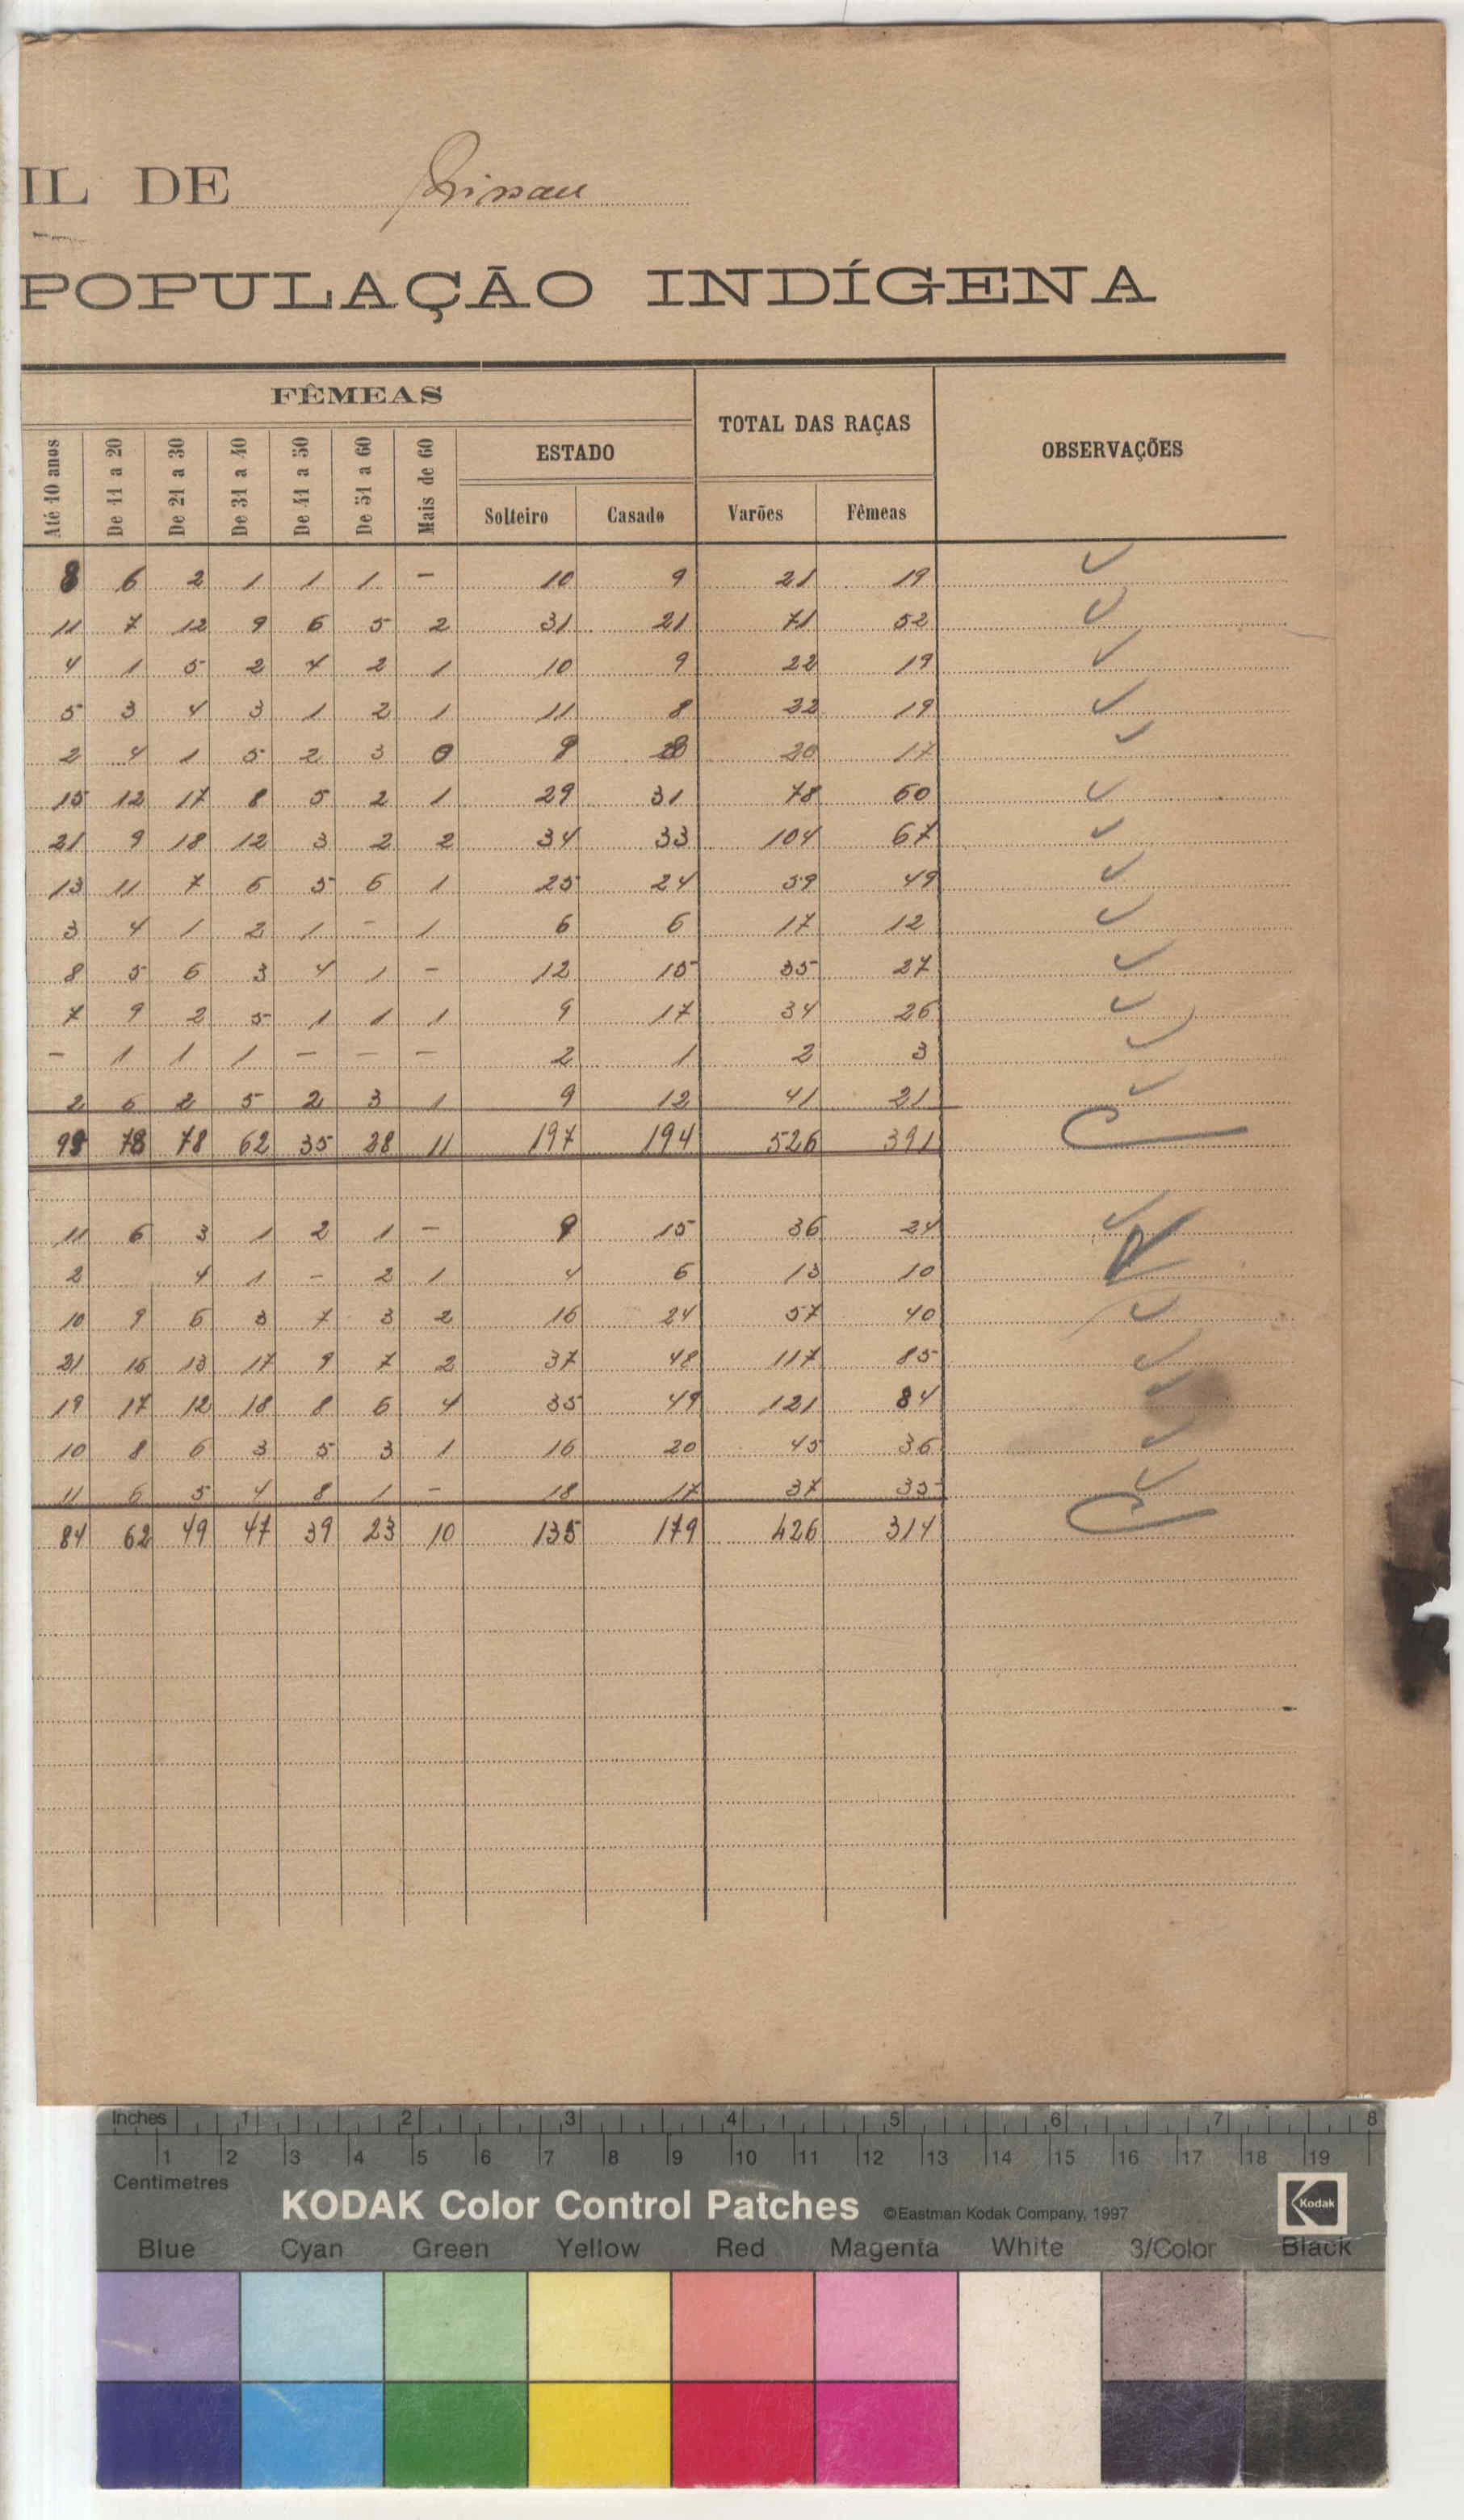 IL DE Bissau
POPULAÇÃO INDÍGENA
FÊMEAS
TOTAL DAS RAÇAS
OBSERVAÇÕES
ESTADO
Até 10 anos
De 11 a 20
De 21 a 30
De 31 a 40
De 41 a 50
De 51 a 60
Mais de 60
Solteiro
Casado
Varões
Fêmeas
8 6 2 1 1 1 - 10 9 21 19
11 7 12 9 6 5 2 31 21 71 52
4 1 5 2 4 2 1 10 9 22 19
5 3 4 3 1 2 1 11 8 22 19
2 4 1 5 2 3 0 9 8 20 17
15 12 17 8 5 2 1 29 31 78 60
21 9 18 12 3 2 2 34 33 104 67
13 11 7 6 5 6 1 25 24 59 49
3 4 1 2 1 - 1 6 6 17 12
8 5 6 3 4 1 - 12 15 35 27
7 9 2 5 1 1 1 9 17 34 26
- 1 1 1 - - - 2 1 2 3
2 6 2 5 2 3 1 9 12 41 21
99 78 78 62 35 28 11 197 194 526 391
11 6 3 1 2 1 - 9 15 36 24
2 4 1 - 2 1 4 6 13 10
10 9 6 3 7 3 2 16 24 57 40
21 16 13 17 9 7 2 37 48 117 85
19 17 12 18 8 6 4 35 49 121 84
10 8 6 3 5 3 1 16 20 45 36
11 6 5 4 8 1 - 18 17 37 35
84 62 49 47 39 23 10 135 179 426 314
Inches 1 2 3 4 5 6 7 8
1 2 3 4 5 6 7 8 9 10 11 12 13 14 15 16 17 18 19
Centimetres
KODAK Color Control Patches ©Eastman Kodak Company, 1997 Kodak
Blue Cyan Green Yellow Red Magenta White 3/Color Black